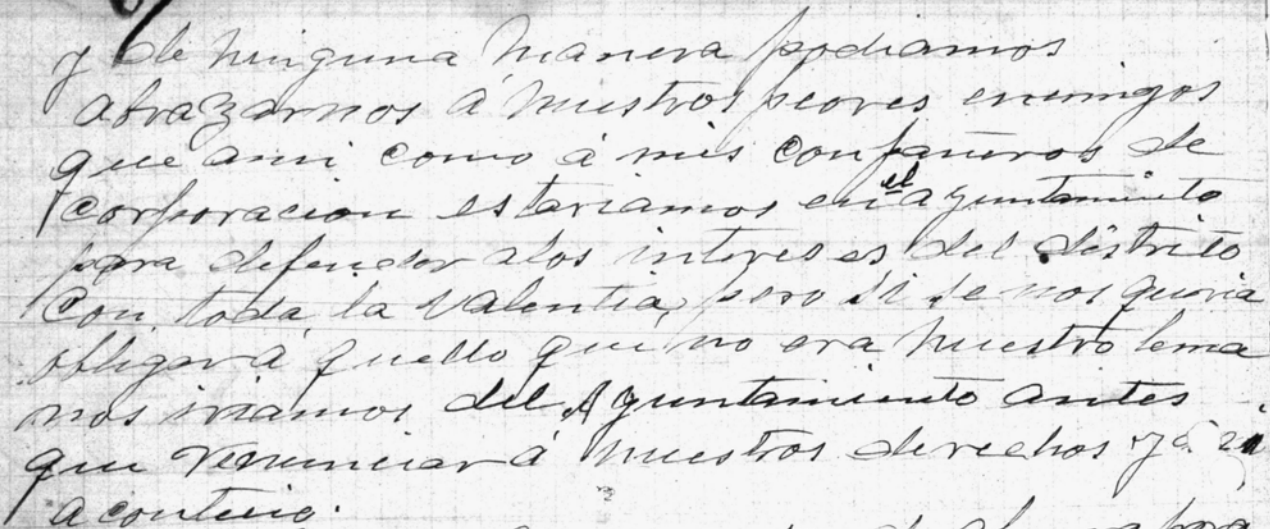 y de ninguna manera podiamos
abrazarnos á nuestros peores enemigos
que ami como á mis conpañeros de
corporacion estariamos en el ayuntamiento
para defender alos intereses del distrito
con toda la valentia, pero si se nos queria
obligar á quello que no era nuestro lema
nos iriamos del Ayuntamiento antes
que renunciar á nuestros derechos y asi
acontecio.